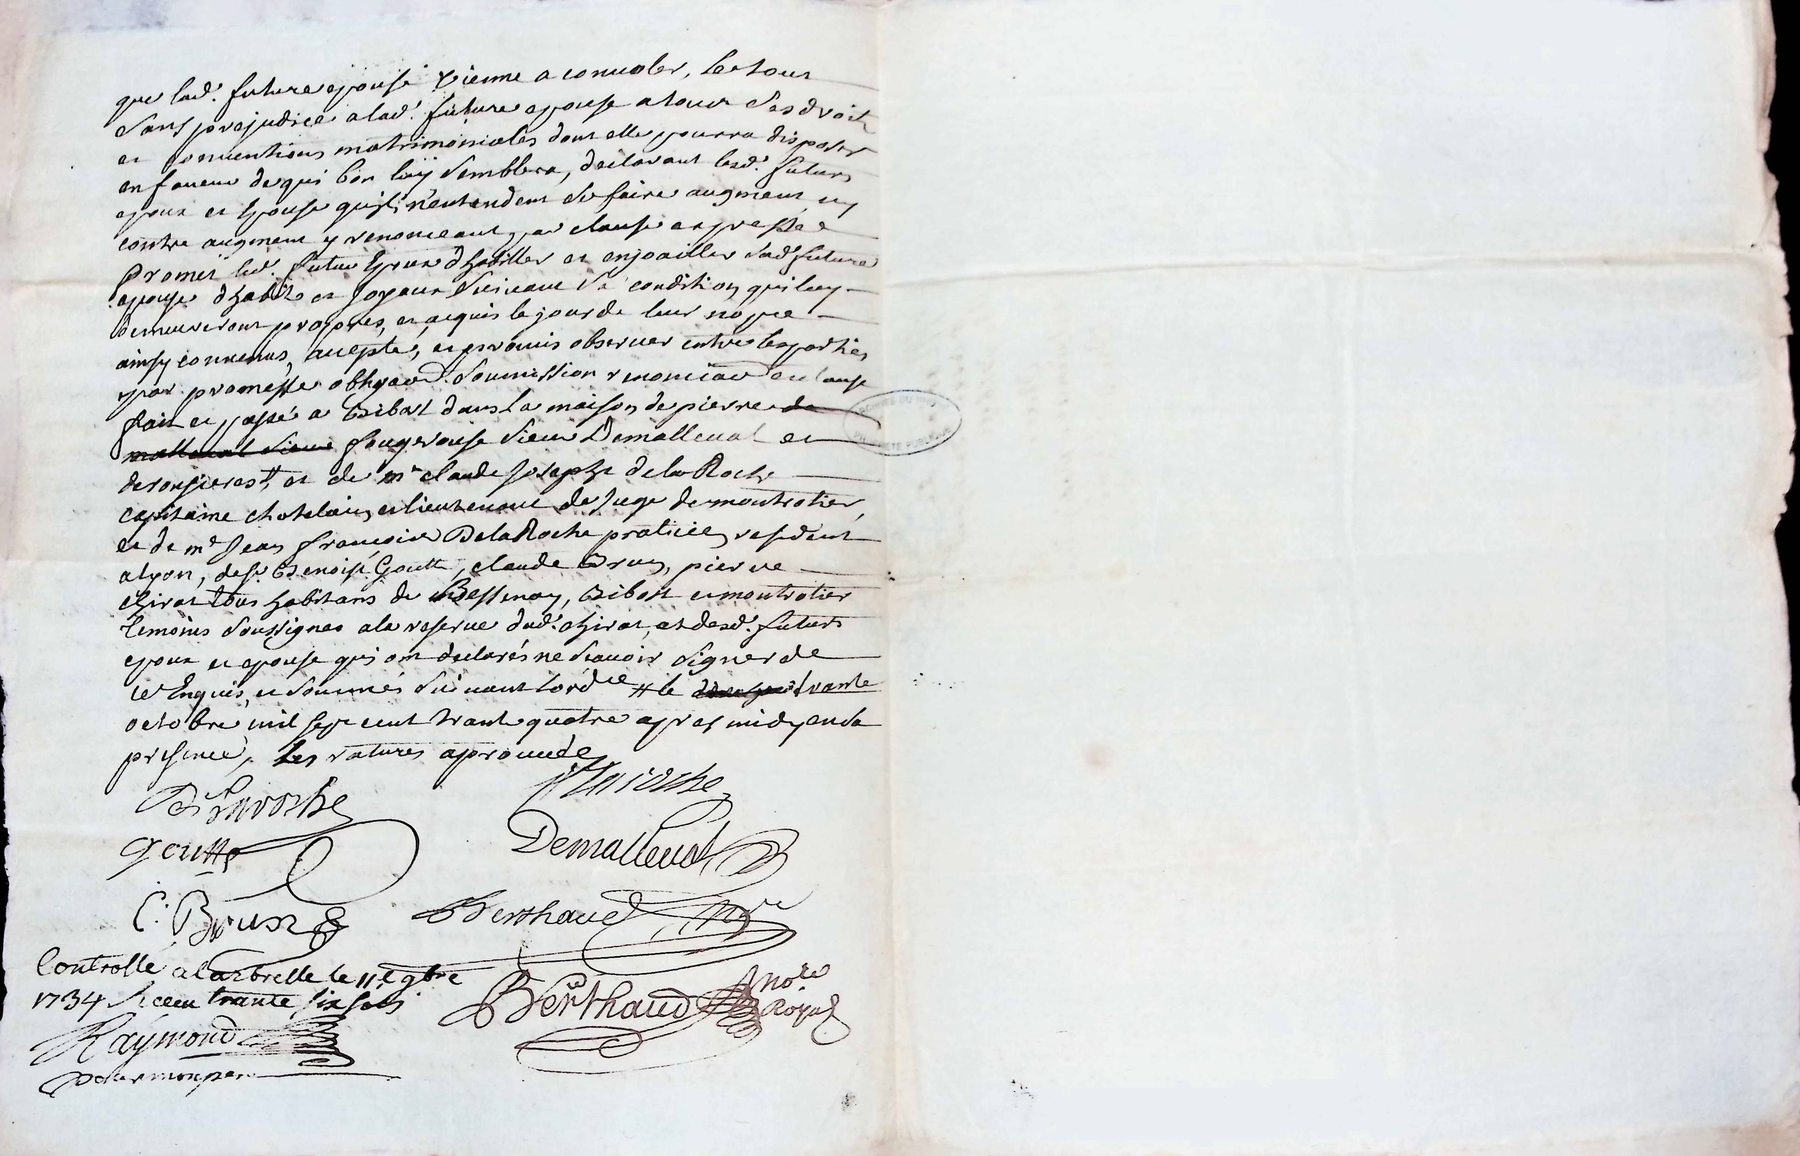 que lad. future epouse vienne a convoler, le tout
sans prejudice a lad. future epouse a tous ses droits
et conventions matrimoniales dont elle pourra disposer
en faveur de qui bon luy semblera, declarant lesd. futurs
epoux et epouse qu'ils n'entendent se faire augment ny
contre augment y renonceant par clause expresse
Promet led. futur Epoux d'habiller et enjoailler lad. future
epouse d'habits et Joyaux suivant sa condition qui luy
demeureront propres, et acquis le jour de leur nopce
ainsy convenus, accepté, et promis observer entre les parties
par promesse obligaon. soumission renonciaon et clause
fait et passé a Bibost dans la maison de pierre de
malleval sieur fougerouse sieur Demalleval et
de ronsieres tt, et de mr claude Joseph de la Roche
capitaine chatelain et lieutenant de Juge de montrotier,
et de me Jean françois De la Roche praticien residant
a lyon, de sr Benoist Goutte, claude Brun, pierre
chirat tous habitans de Bessenay, Bibost et montrotier
temoins soussignes a la reserve dud. chirat, et desd. futurs
epoux et epouse qui ont declarés ne scavoir signer de
ce Enquis, et sommés suivant lordce tt le trante
octobre mil sept cent trante quatre apres midy en la
presence, les ratures aprouvées
De Laroche
Laroche
goutte
Demalleval
C. Brun
Berthaud
Controllé a larbrelle le 11e 9bre
1734 Receu trante six sols
Berthaud nore Royal
Raymond
pour mon pere